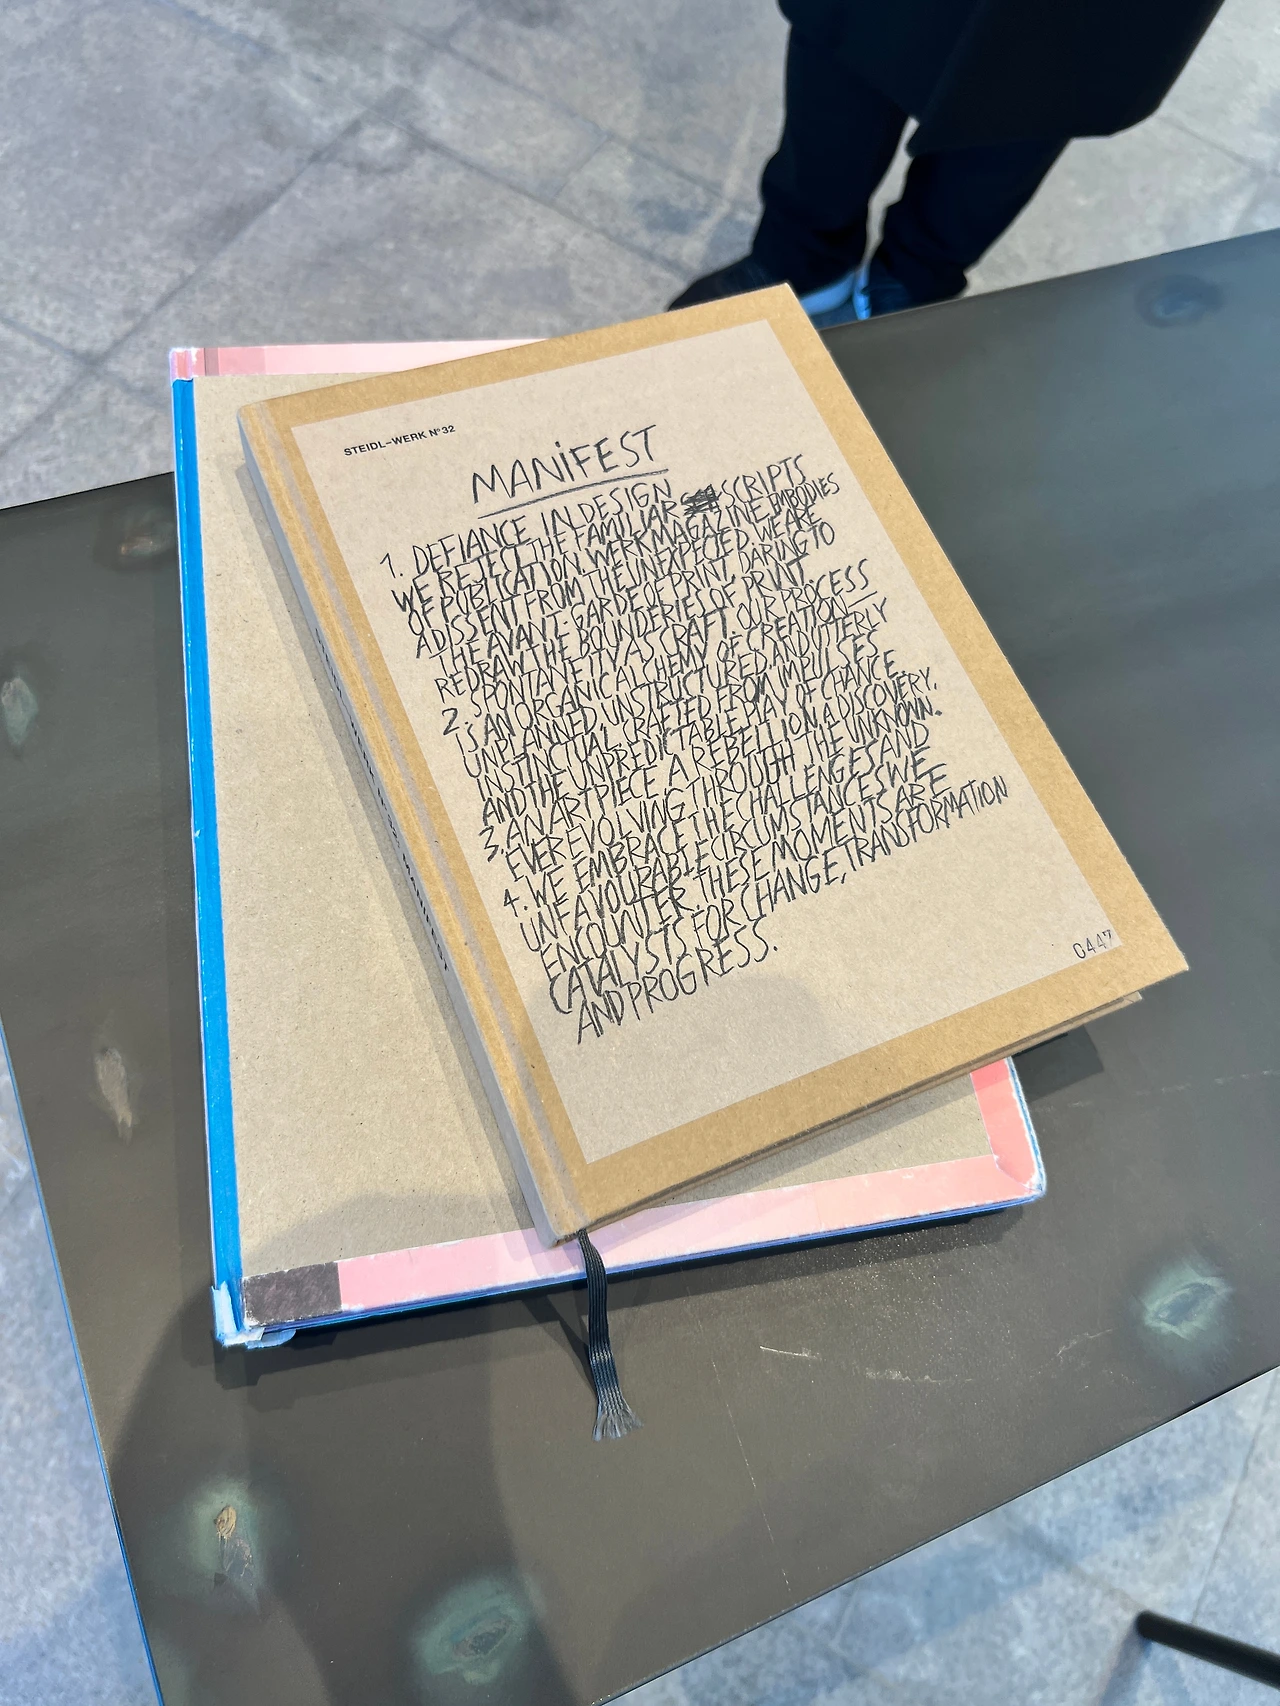 STEIDL–WERK N°32
MANiFEST
1. DEFIANCE IN DESIGN
WE REJECT THE FAMILIAR SCRIPTS
OF PUBLICATION. WERK MAGAZINE EMBODIES
A DISSENT FROM THE UNEXPECTED. WE ARE
THE AVANT-GARDE OF PRINT, DARING TO
REDRAW THE BOUNDERIES OF PRINT.
2. SPONTANEITY AS CRAFT. OUR PROCESS
IS AN ORGANIC ALCHEMY OF CREATION –
UNPLANNED, UNSTRUCTURED, AND UTTERLY
INSTINCTUAL. CRAFTED FROM IMPULSES
AND THE UNPREDICTABLE PLAY OF CHANCE
3. AN ART PIECE A REBELLION, A DISCOVERY,
EVER EVOLVING THROUGH THE UNKNOWN.
4. WE EMBRACE THE CHALLENGES AND
UNFAVOURABLE CIRCUMSTANCES WE
ENCOUNTER. THESE MOMENTS ARE
CATALYSTS FOR CHANGE, TRANSFORMATION
AND PROGRESS.
0447
MANIFEST